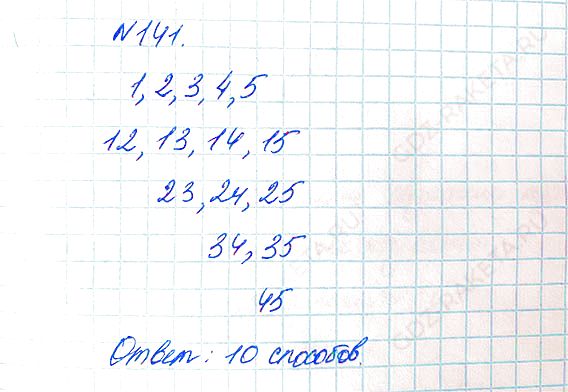 N141.
1, 2, 3, 4, 5
12, 13, 14, 15
23, 24, 25
34, 35
45
Ответ: 10 способов.
GDZ-RAKETA.RU
GDZ-RAKETA.RU